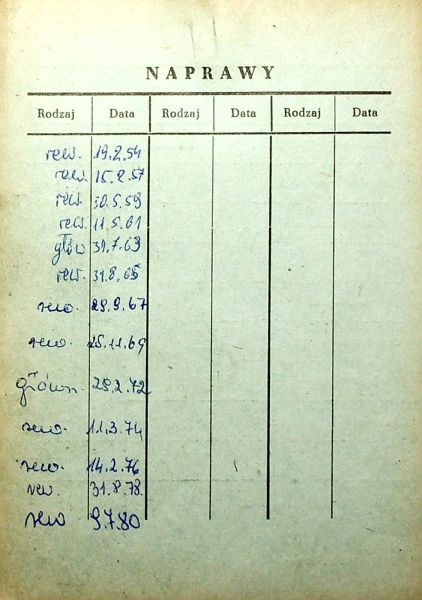 NAPRAWY
Rodzaj Data Rodzaj Data Rodzaj Data
rew. 19.2.54
rew. 15.2.57
rew. 30.5.59
rew. 11.5.61
głów 31.7.63
rew. 31.8.65
rew. 29.9.67
rew. 25.11.69
główn. 29.2.72
rew. 11.3.74
rew. 14.2.76
rew. 31.8.78.
rew 9.7.80